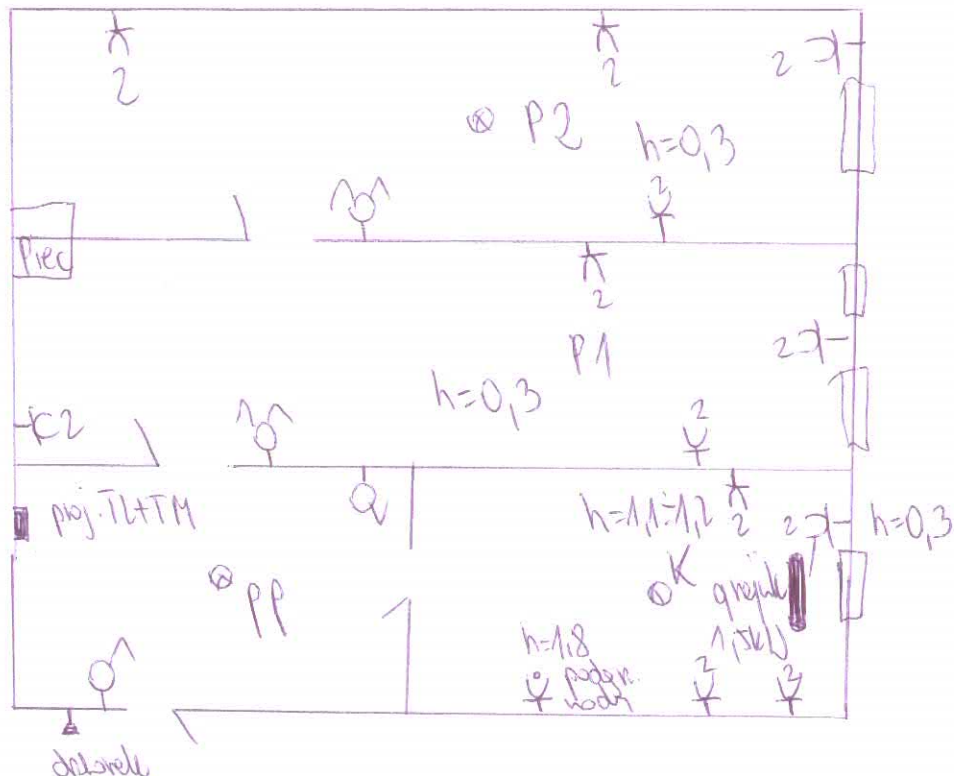 2
2
2
P2
h=0,3
2
Piec
2
P1
2
h=0,3
2
2
proj. TL+TM
h=1,1÷1,2
2
2
h=0,3
K
grzejnik
1,5kW
PP
h=1,8
podgrz.
wody
2
2
dzwonek